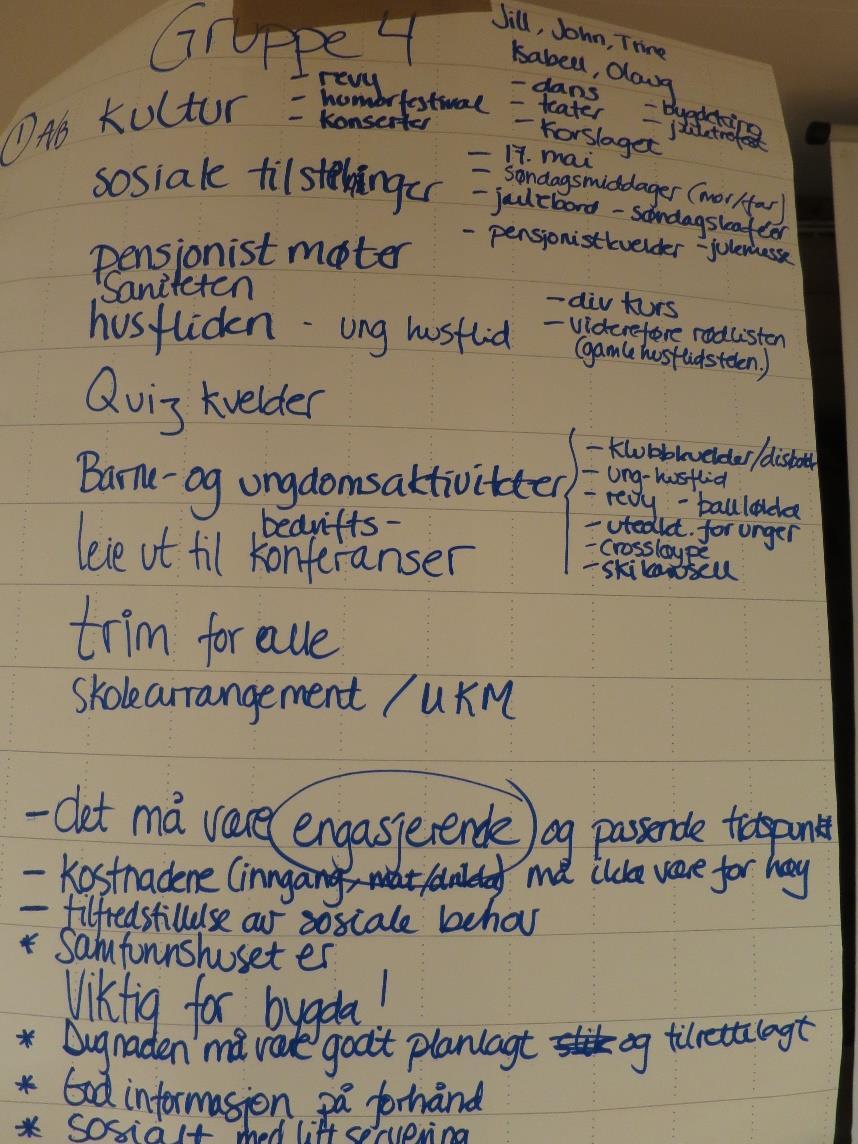 Gruppe 4
Jill, John, Trine
Isabell, Olaug
① A/B kultur
- revy
- humorfestival
- konserter
- dans
- teater
- Korslaget
- bygdeting
- juletrefest
sosiale tilstelninger
- 17. mai
- søndagsmiddager (mor/far)
- julebord - søndagskafeer
- pensjonistkvelder - julemesse
pensjonist møter
Saniteten
husfliden - ung husflid
- div kurs
- videreføre rødlisten
(gamle husflidsteken.)
Quiz kvelder
Barne- og ungdomsaktiviteter
- klubbkvelder/diskotek
- ung-husflid
- revy - balløkka
- uteakt. for unger
- crossløype
- skikarusell
bedrifts-
leie ut til konferanser
trim for alle
skolearrangement / UKM
- det må være engasjerende og passende tidspunkt
- kostnadene (inngang, mat/drikke) må ikke være for høy
- tilfredstillelse av sosiale behov
* Samfunnshuset er
Viktig for bygda!
* Dugnaden må være godt planlagt slik og tilrettelagt
* God informasjon på forhånd
* sosialt med litt servering